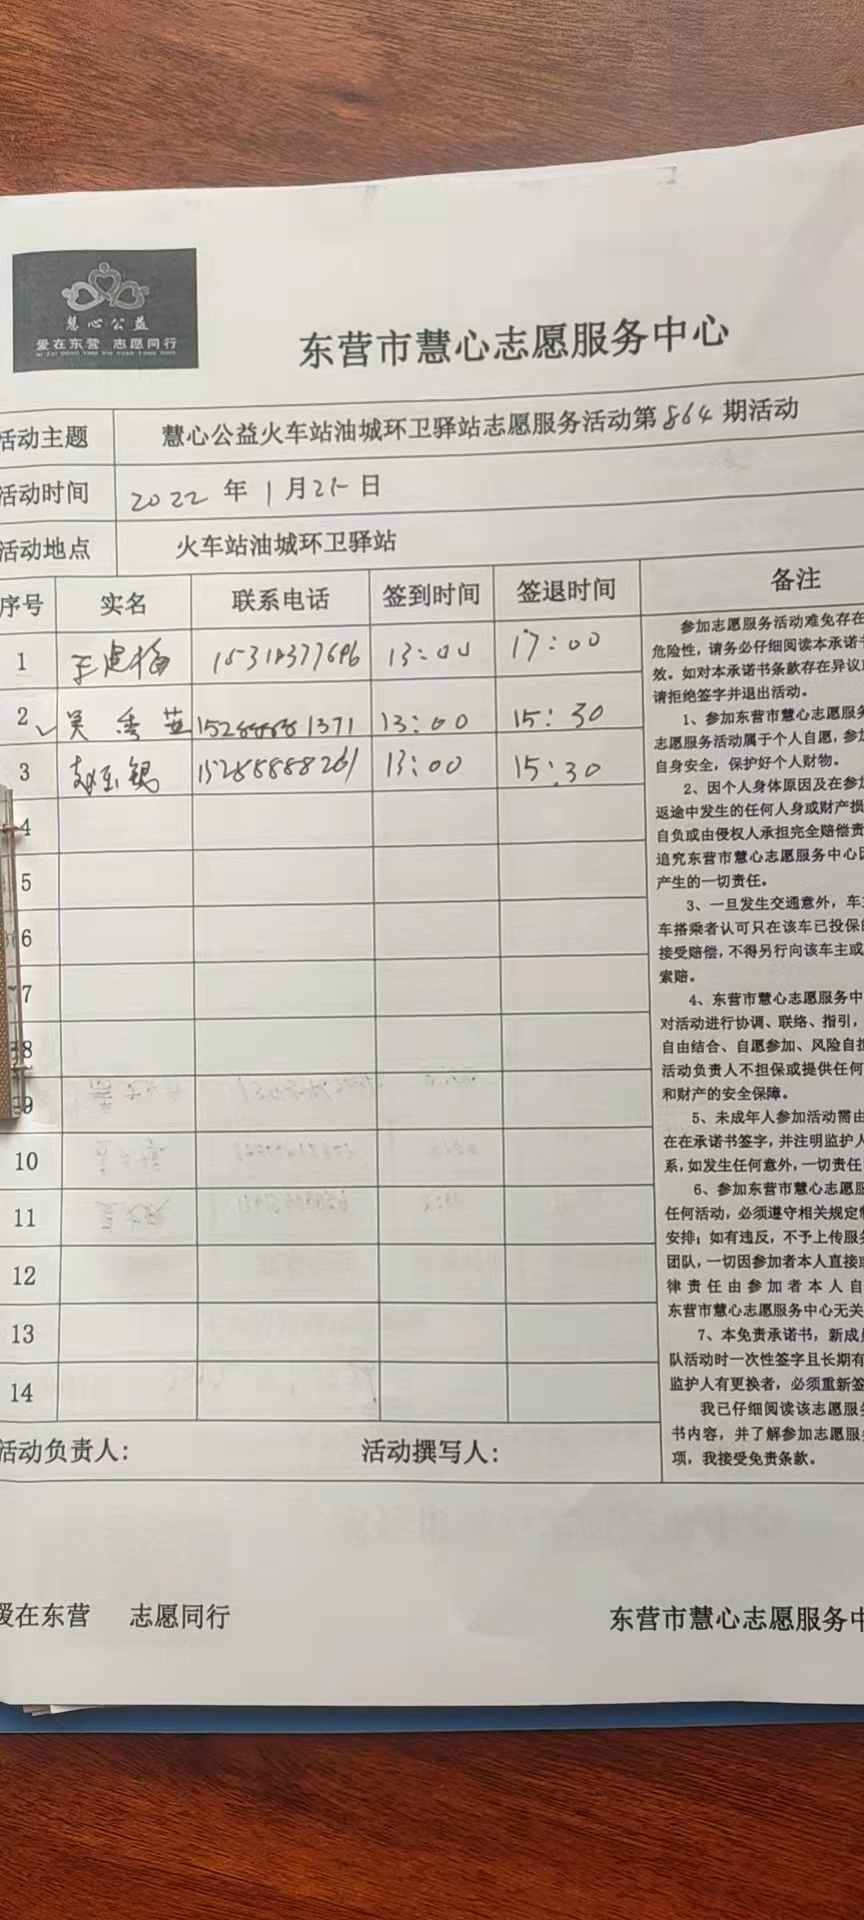 慧心公益
爱在东营 志愿同行
东营市慧心志愿服务中心
活动主题 慧心公益火车站油城环卫驿站志愿服务活动第864期活动
活动时间 2022年1月25日
活动地点 火车站油城环卫驿站
序号 实名 联系电话 签到时间 签退时间 备注
1 王建梅 13:00 17:00
2 吴秀英 15288881371 13:00 15:30
3 赵玉锡 15288888261 13:00 15:30
4
5
6
7
8
9
10
11
12
13
14
参加志愿服务活动难免存在
危险性，请务必仔细阅读本承诺书
效。如对本承诺书条款存在异议
请拒绝签字并退出活动。
1、参加东营市慧心志愿服务
志愿服务活动属于个人自愿，参加
自身安全，保护好个人财物。
2、因个人身体原因及在参加
返途中发生的任何人身或财产损
自负或由侵权人承担完全赔偿责
追究东营市慧心志愿服务中心因
产生的一切责任。
3、一旦发生交通意外，车主
车搭乘者认可只在该车已投保的
接受赔偿，不得另行向该车主或
索赔。
4、东营市慧心志愿服务中
对活动进行协调、联络、指引，
自由结合、自愿参加、风险自担
活动负责人不担保或提供任何
和财产的安全保障。
5、未成年人参加活动需由
在在承诺书签字，并注明监护人
系，如发生任何意外，一切责任
6、参加东营市慧心志愿服
任何活动，必须遵守相关规定
安排；如有违反，不予上传服务
团队，一切因参加者本人直接或
律责任由参加者本人自
东营市慧心志愿服务中心无关
7、本免责承诺书，新成员
队活动时一次性签字且长期有
监护人有更换者，必须重新签
我已仔细阅读该志愿服务
书内容，并了解参加志愿服务
项，我接受免责条款。
活动负责人： 活动撰写人：
爱在东营 志愿同行 东营市慧心志愿服务中